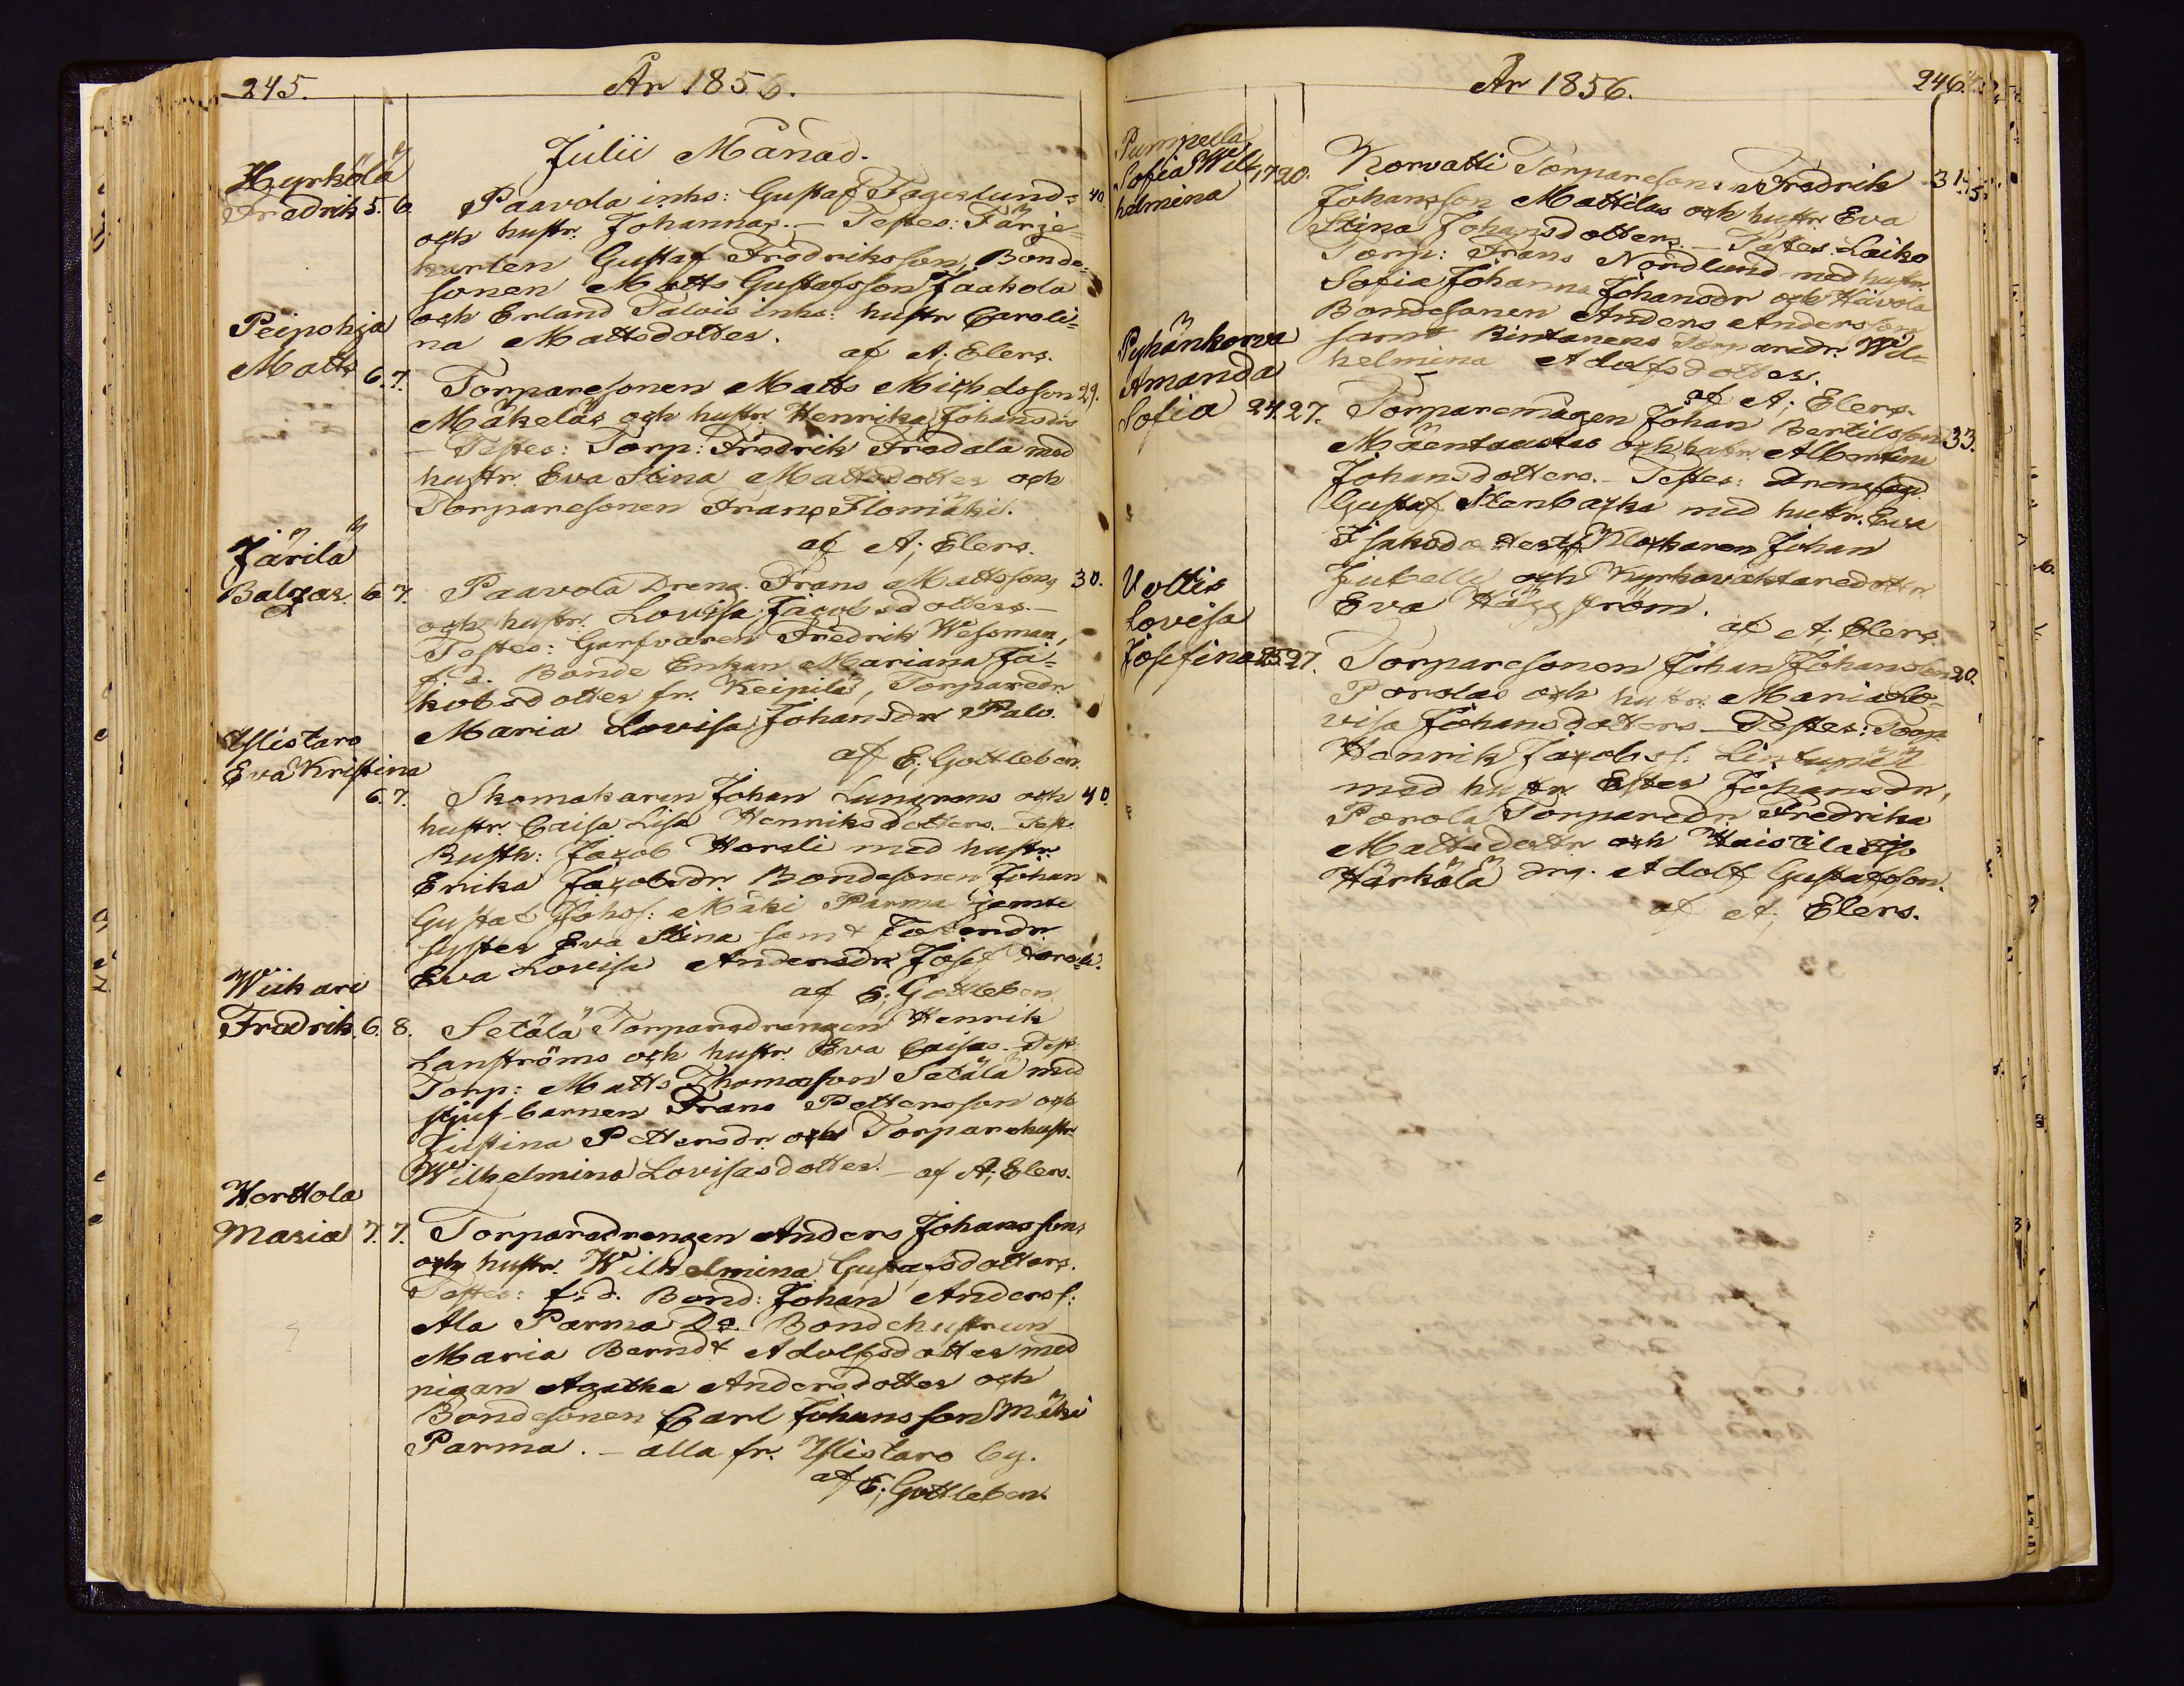 245.
År 1856.
Julii Månad.
Hyrkölä
Fredrik 5. 6. Paavola inhs: Gustaf Fagerlunds 40.
och hustr. Johannas. — Testes: Färje-
karlen Gustaf Fredriksson, Bonde-
sonen Matts Gustafsson Jaakola
och Erland Talvis inhs: hustr Caroli-
na Mattsdotter.
af A; Elers.
Peipohja
Matts 6. 7. Torparesonen Matts Michelsson 29.
Mäkeläs och hustr. Henrika Johansdrs
— Testes: Torp: Fredrik Fredala med
hustr. Eva Stina Mattsdotter och
Torparesonen Frans Flomäki.
af A; Elers.
Järilä
Balzar. 6 7. Paavola Dreng. Frans Mattssons 30.
och hustr. Lovisa Jacobsdotters. —
Testes: Garfvaren Fredrik Wessman,
f. d. Bonde Enkan Mariana Ja-
kobsdotter fr. Keipilä, Torparedr.
Maria Lovisa Johansdr Palo.
af E; Gottleben.
Ylistaro
Eva Kristina
6. 7. Skomakaren Johan Lungrens och 40.
hustr. Caisa Lisa Henriksdotters. — Test.
Busth: Jacob Horsli med hustr.
Erika Jacobsdr. Bondesonen Johan
Gustaf Johss: Mäki Parma jemte
syster Eva Stina samt
Eva Lovisa Andersdr. Josef
af E; Gottleben
Wiikari
Fredrik. 6. 8. Setälä Torparedrengen Henrik
Lanströms och hustr. Eva Caisas. Test
Torp: Matts Thomasson Setälä med
stjufbarnen Frans Pettersson och
Justina Pettersdr. och Torparehustr.
Wilhelmina Lovisasdotter. — af A; Elers.
Herttola
Maria 7. 7. Torparedrengen Anders Johanssons
och hustr. Wilhelmina Gustafsdotters.
Testes: f. d. Bond: Johan Anderss:
Ala Parma Do. Bondehustrun
Maria Berndt Adolfsdotter med
pigan Agatha Andersdotter och
Bondesonen Carl Johansson Mäki
Parma. — alla fr. Ylistaro by.
af E; Gottleben.
År 1856.
246.
Pumpula
Sofia Wil-
helmina 17 20. Korvatti Torparesons Fredrik 31.
Johansson Mattilas och hustr. Eva
Stina Johansdotters. — Testes. Laiko
Torp: Frans Nordlund med hustr.
Sofia Johanna Johansdr och Hiivola
Bondesonen Anders Andersson
samt Rintanens Torparedr. Wil-
helmina Adolfsdotter.
af A; Elers.
Pyhänkorva
Amanda
Sofia 24. 27. Torparemågen Johan Bertilsson 33.
Mäentaustas och hustr. Albertina
Johansdotters. — Testes:
Gustaf Stenbacka med hustr. Eva
Klockaren Johan
Jubelli och Kyrkoväktaredottr.
Eva Häggström.
af A. Elers.
Uottis
Lovisa
Josefina 25. 27. Torparesonen Johan Johansson 20.
Porolas och hustr. Maria Lo-
visa Johansdotters — Testes: Torp
Henrik Jacobss: Lintupää
med hustr. Ester Johansdr.,
Porola Torparedr. Fredrika
Mattsdottr och Haistila
Härkälä drg. Adolf Gustafsson.
af A; Elers.